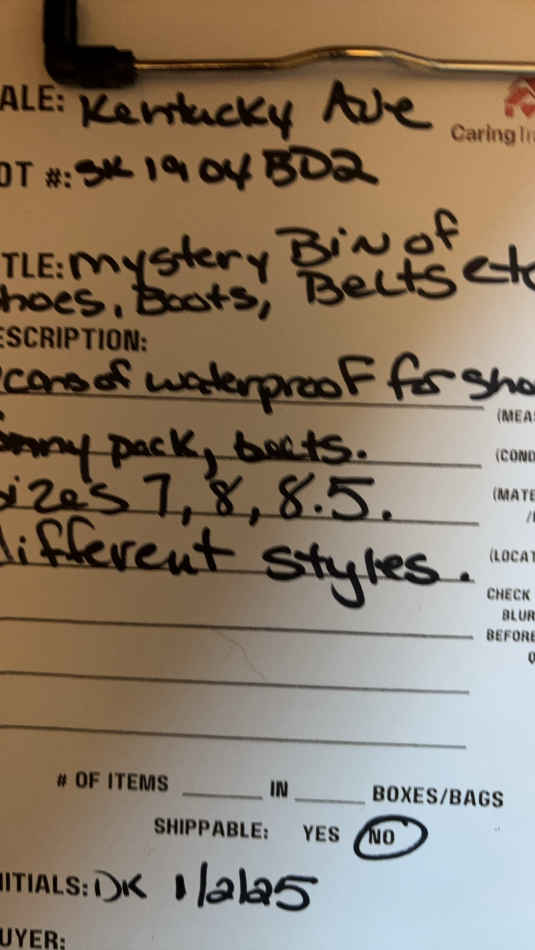 ALE: Kentucky Ave
Caring
OT #: SK 1904 BD2
TLE: mystery Bin of
hoes, Boots, Belts etc
ESCRIPTION:
cans of waterproof for sho
(MEA
nny pack, boots.
(COND
sizes 7, 8, 8.5.
(MATE
different styles.
(LOCAT
CHECK
BLUR
BEFORE
# OF ITEMS IN BOXES/BAGS
SHIPPABLE: YES NO
NITIALS: DK 1/2/25
UYER: